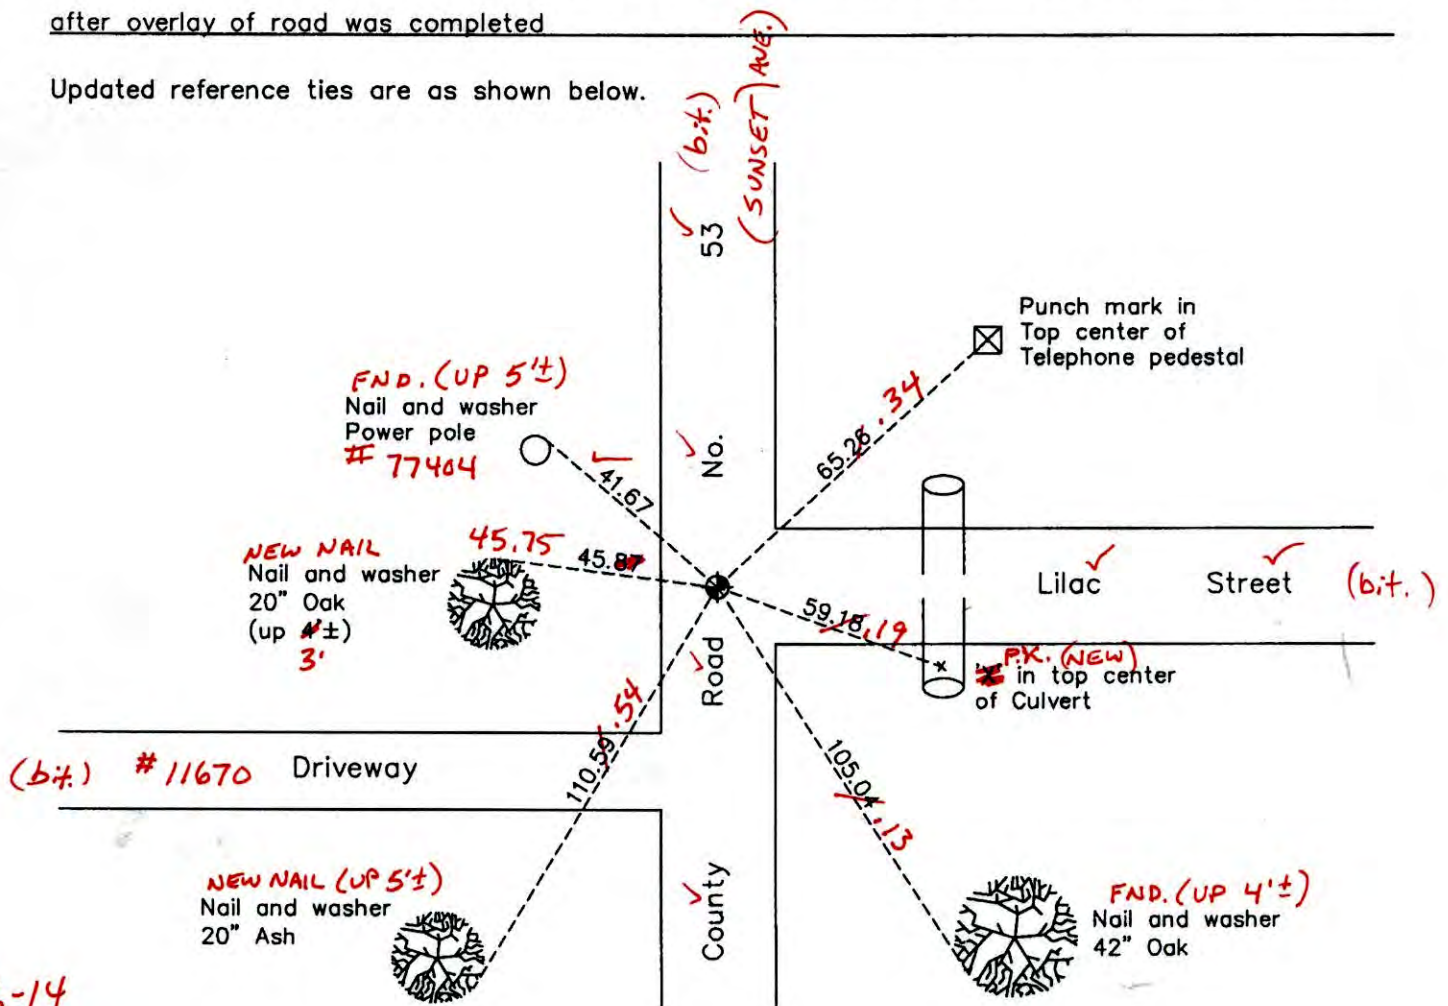 after overlay of road was completed
Updated reference ties are as shown below.
(bit.)
(SUNSET AVE.)
53
No.
Road
County
Punch mark in
Top center of
Telephone pedestal
65.26 .34
FND. (UP 5'±)
Nail and washer
Power pole
# 77404
41.67
NEW NAIL
Nail and washer
20" Oak
(up 4'±)
3'
45.75
45.87
Lilac Street (bit.)
59.18 .19
P.K. (NEW)
'X' in top center
of Culvert
(bit.) # 11670 Driveway
110.59 .54
105.04 .13
NEW NAIL (UP 5'±)
Nail and washer
20" Ash
FND. (UP 4'±)
Nail and washer
42" Oak
-14